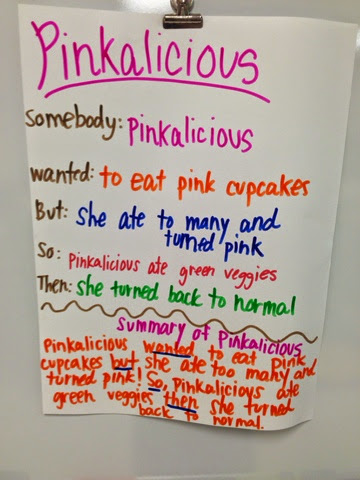 Pinkalicious
Somebody: Pinkalicious
wanted: to eat pink cupcakes
But: she ate to many and
turned pink
So: Pinkalicious ate green veggies
Then: she turned back to normal
Summary of Pinkalicious
Pinkalicious wanted to eat pink
cupcakes but she ate too many and
turned pink! So, Pinkalicious ate
green veggies then she turned
back to normal.